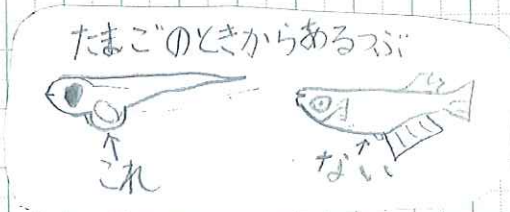 たまごのときからあるつぶ
これ
ない